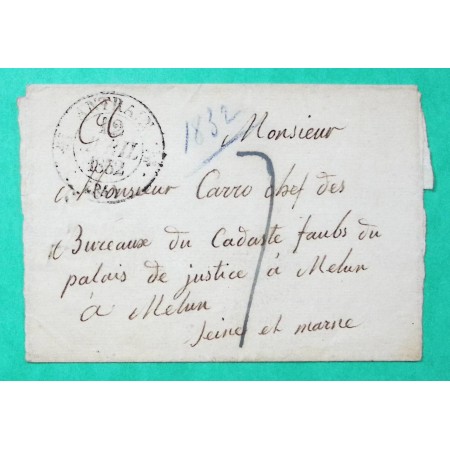 1832
1832
Monsieur
a Monsieur Carro chef des
Bureaux du Cadaste faubs du
palais de justice à Melun
à Melun
Seine et marne
7